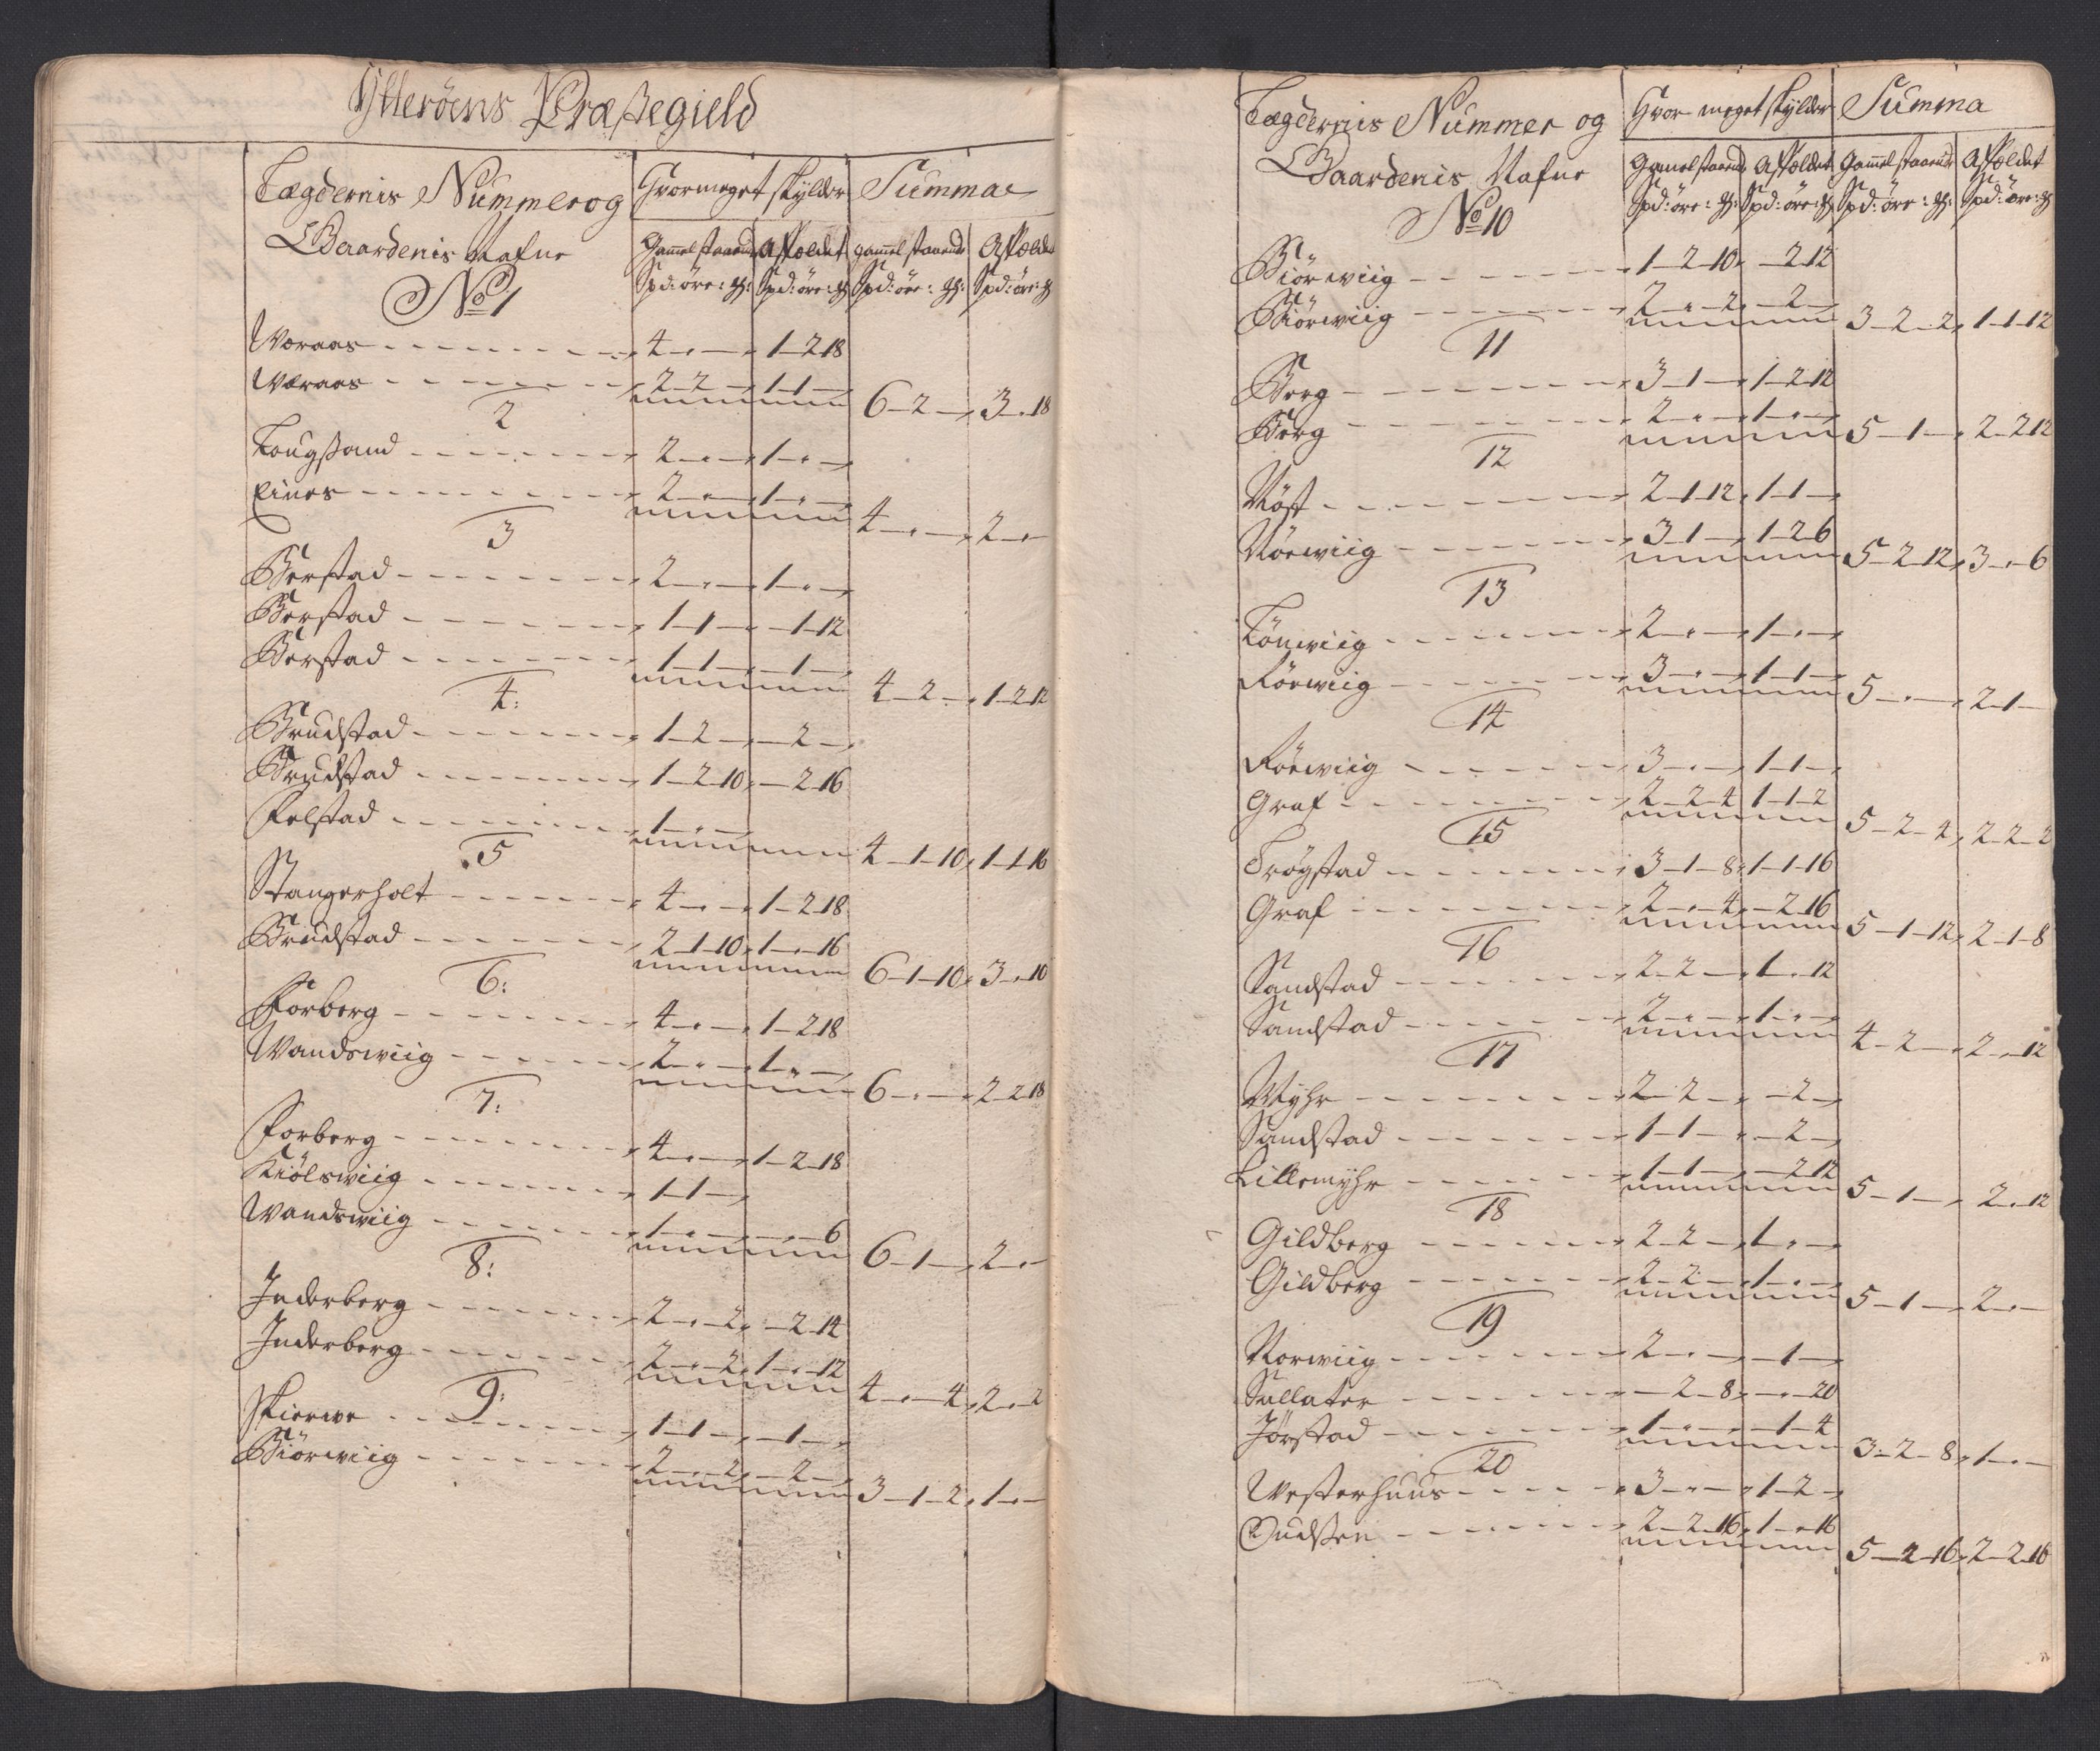 Ytterøens Præstegield
Lægdernis Nummer og Hvormeget skylder Summa
Gaardenis Nafne Gamel staaende Affældet gamel staaende Affældet
Spd: öre: Spd: öre: Spd: öre: Spd: öre:
No 1
Woraas 4 - - 1-2-18
Woraas 2-2- 1-1-
6-2- 3-.-18
2
2-.- 1-.-
Eines 2-.- 1-.-
4-.- 2-.-
3
Berstad 2-.- 1-.-
Berstad 1-1- -1-12
Berstad 1-1- -1-
4-2- 1-2-12
4:
Brudstad 1-2- -2-
Brudstad 1-2-10 -2-16
Felstad 1-.-
4-1-10 1-1-16
5
Stangerholt 4-.- 1-2-18
Brudstad 2-1-10 1-.-16
6-1-10 3-.-10
6:
Forberg 4-.- 1-2-18
Wandswiig 2-.- 1-.-
6-.- 2-2-18
7:
Forberg 4-.- 1-2-18
Kiölswiig 1-1-
Wandswiig 1-.- -.-6
6-1- 2-.-
8:
Inderberg 2-.-2 -2-14
Inderberg 2-.-2 1-.-12
4-.-4 2-.-2
9:
Skierwe 1-1- -1-
Biörwiig 2-.-2 -2-
3-1-2 1-.-
Lægdernis Nummer og Hvor meget skylder Summa
Gaardenis Nafne Gamel staaende Affældet Gamel staaende Affældet
Spd: öre: Spd: öre: Spd: öre: Spd: öre:
No 10
Biörwiig 1-2-10 -2-12
Biörwiig 2-.-2 -2-
3-2-2 1-1-12
11
Berg 3-1- 1-2-12
Berg 2-.- 1-.-
5-1- 2-2-12
12
Röst 2-1-12 1-1-
Nörwiig 3-1- 1-2-6
5-2-12 3-.-6
13
Lönwiig 2-.- 1-.-
Rörwiig 3-.- 1-1-
5-.- 2-1-
14
Rörwiig 3-.- 1-1-
Graf 2-2-4 1-1-2
5-2-4 2-2-2
15
Trögstad 3-1-8 1-1-16
Graf 2-.-4 -2-16
5-1-12 2-1-8
16
Sandstad 2-2- 1-.-12
Sandstad 2-.- 1-.-
4-2- 2-.-12
17
Myhr 2-2- -2-
Sandstad 1-1- -2-
Lillemyhr 1-1- -2-12
5-1- 2-.-12
18
Gildberg 2-2- 1-.-
Gildberg 2-2- 1-.-
5-1- 2-.-
19
Norwiig 2-.- -1-
Sallater -2-8 -.-20
Jørstad 1-.- -1-4
3-2-8 1-.-
20
Westerhuus 3-.- 1-2-
2-2-16 1-.-16
5-2-16 2-2-16